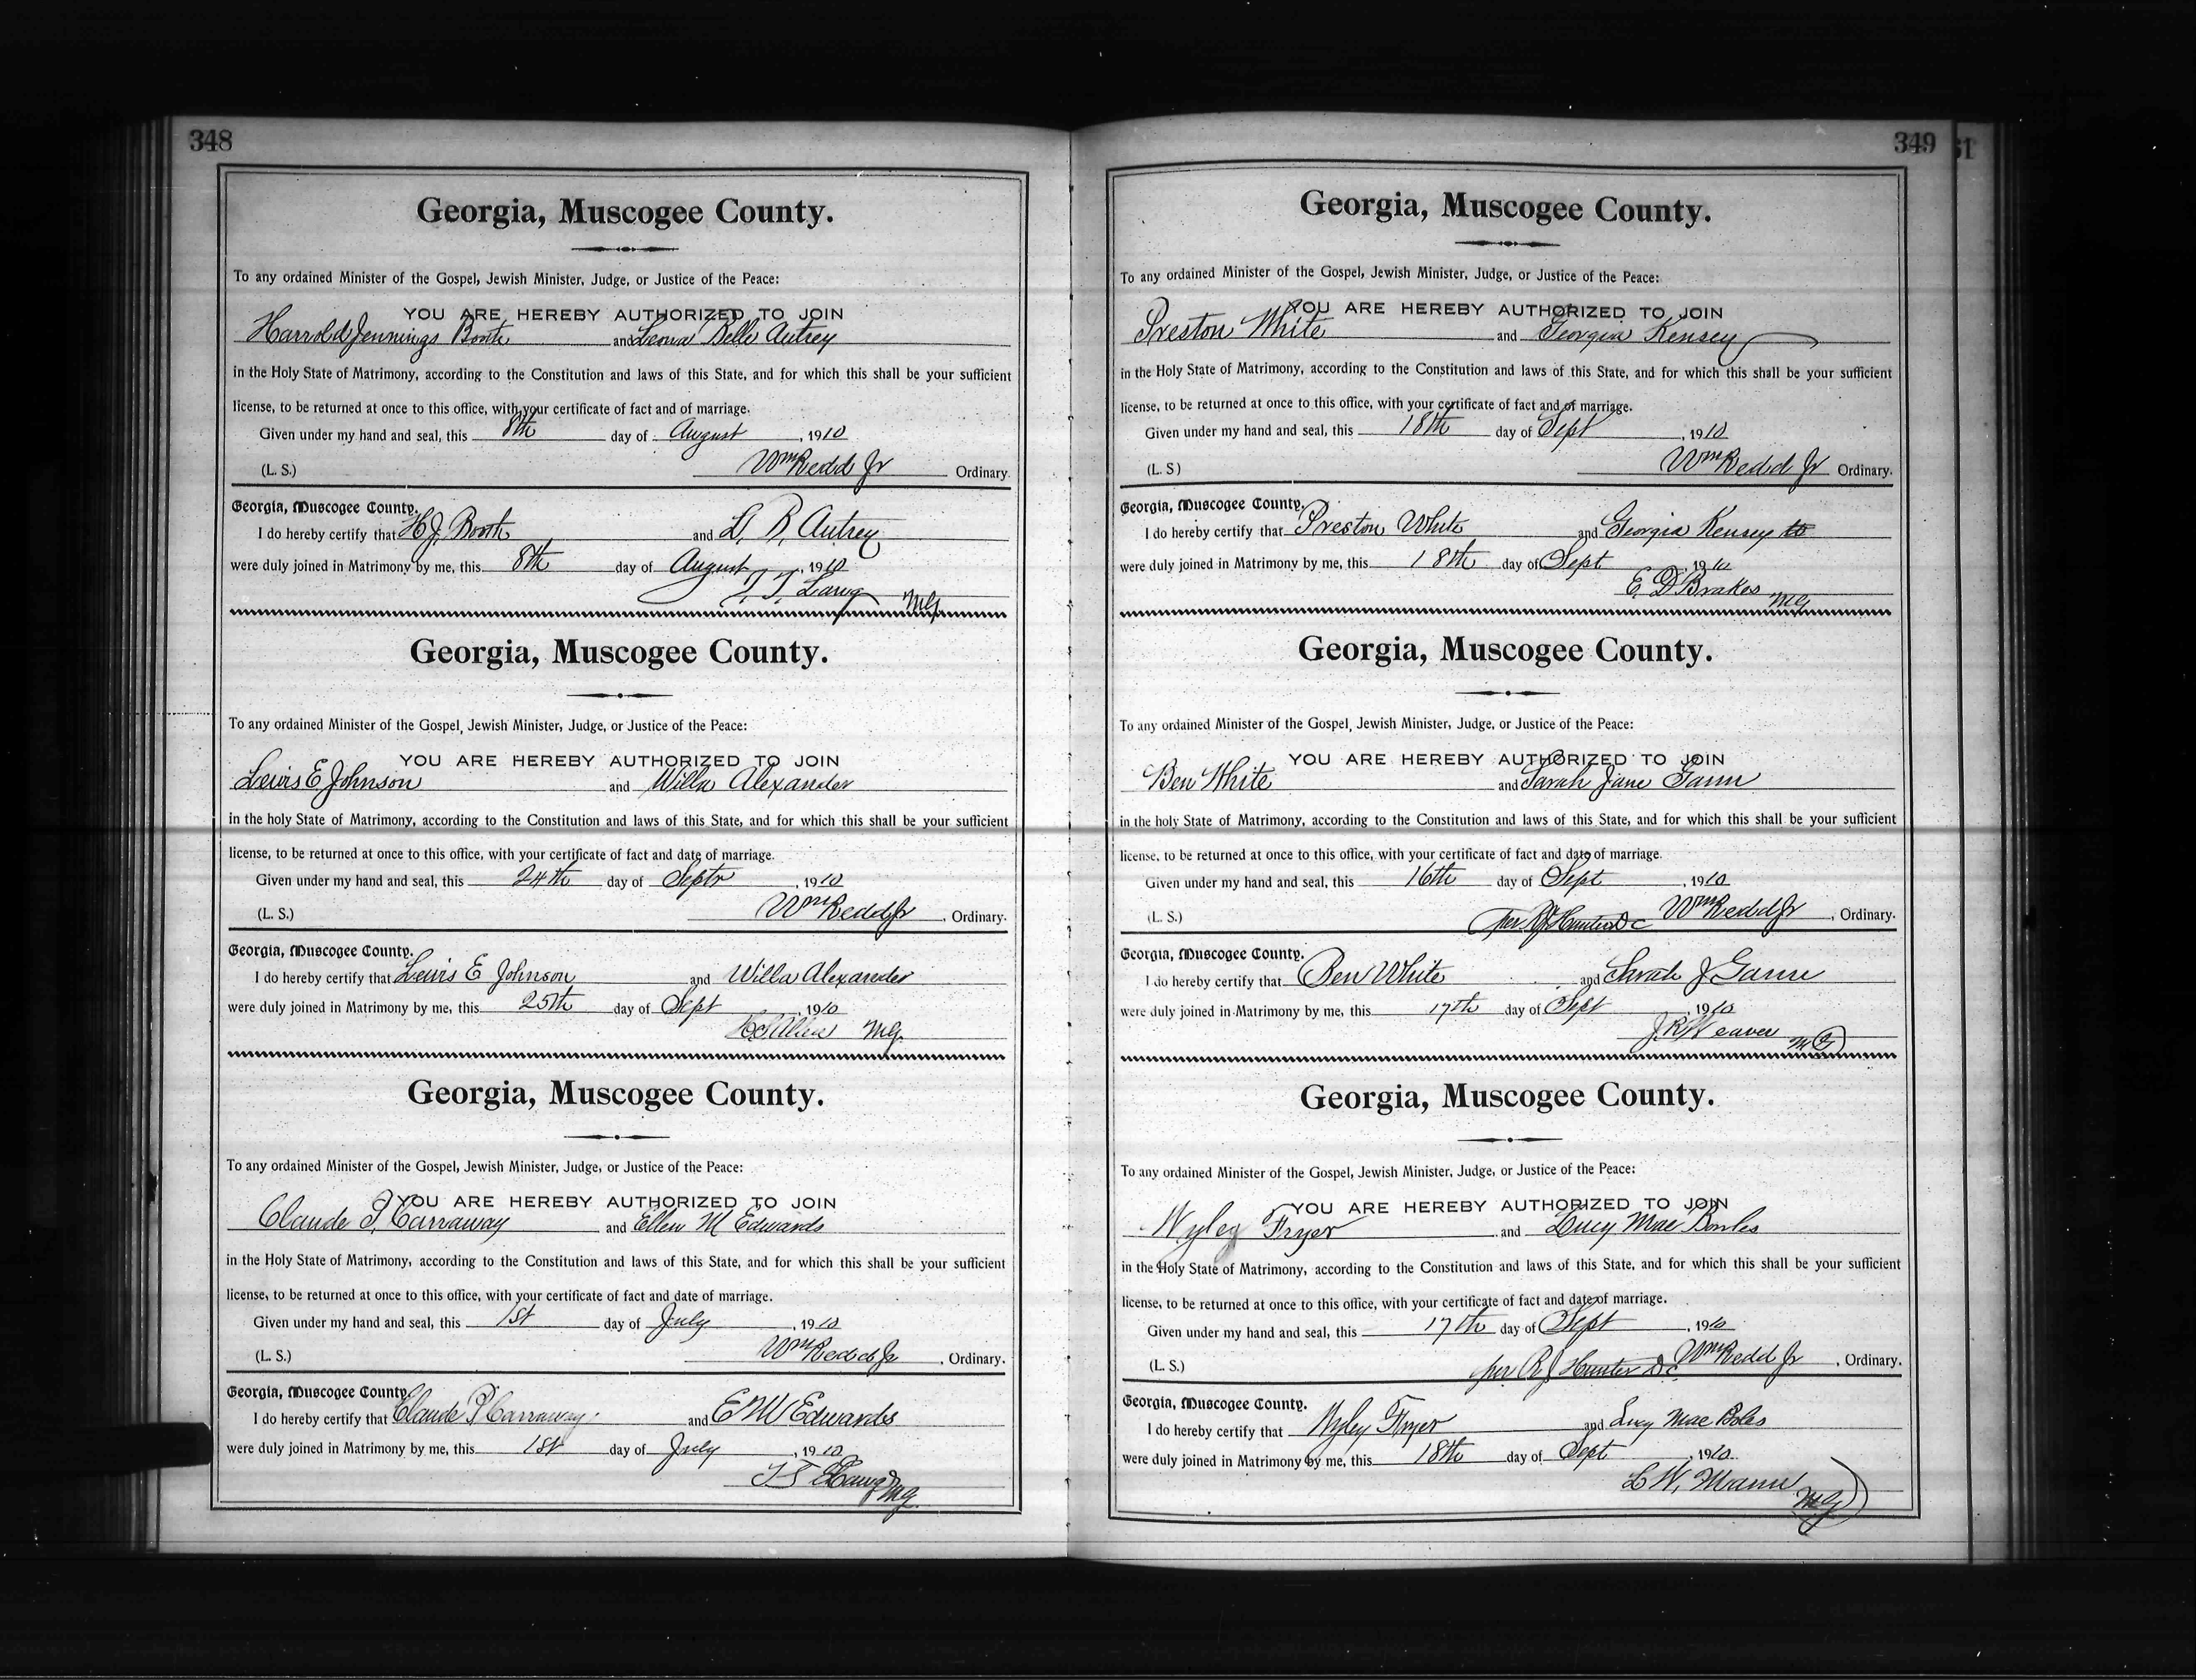 348
Georgia, Muscogee County.
To any ordained Minister of the Gospel, Jewish Minister, Judge, or Justice of the Peace:
YOU ARE HEREBY AUTHORIZED TO JOIN
Harrold Jennings Booth and Leona Belle Autrey
in the Holy State of Matrimony, according to the Constitution and laws of this State, and for which this shall be your sufficient
license, to be returned at once to this office, with your certificate of fact and of marriage.
Given under my hand and seal, this 8th day of August, 1910
(L. S.) Wm Redd Jr Ordinary.
Georgia, Muscogee County.
I do hereby certify that H J Booth and L. B. Autrey
were duly joined in Matrimony by me, this 8th day of August, 1910
T. T. Lang MG.
Georgia, Muscogee County.
To any ordained Minister of the Gospel, Jewish Minister, Judge, or Justice of the Peace:
YOU ARE HEREBY AUTHORIZED TO JOIN
Lewis E Johnson and Willa Alexander
in the holy State of Matrimony, according to the Constitution and laws of this State, and for which this shall be your sufficient
license, to be returned at once to this office, with your certificate of fact and date of marriage.
Given under my hand and seal, this 24th day of Septr, 1910
(L. S.) Wm Redd Jr, Ordinary.
Georgia, Muscogee County.
I do hereby certify that Lewis E Johnson and Willa Alexander
were duly joined in Matrimony by me, this 25th day of Sept, 1910
Allen MG.
Georgia, Muscogee County.
To any ordained Minister of the Gospel, Jewish Minister, Judge, or Justice of the Peace:
YOU ARE HEREBY AUTHORIZED TO JOIN
Claude P. Carraway and Ellen M Edwards
in the Holy State of Matrimony, according to the Constitution and laws of this State, and for which this shall be your sufficient
license, to be returned at once to this office, with your certificate of fact and date of marriage.
Given under my hand and seal, this 1st day of July, 1910
(L. S.) Wm Redd Jr, Ordinary.
Georgia, Muscogee County.
I do hereby certify that Claude P Carraway and E M Edwards
were duly joined in Matrimony by me, this 1st day of July, 1910
Lang MG.
349
51
Georgia, Muscogee County.
To any ordained Minister of the Gospel, Jewish Minister, Judge, or Justice of the Peace:
YOU ARE HEREBY AUTHORIZED TO JOIN
Preston White and Georgia Kensey
in the Holy State of Matrimony, according to the Constitution and laws of this State, and for which this shall be your sufficient
license, to be returned at once to this office, with your certificate of fact and of marriage.
Given under my hand and seal, this 18th day of Sept, 1910
(L. S) Wm Redd Jr Ordinary.
Georgia, Muscogee County.
I do hereby certify that Preston White and Georgia Kensey
were duly joined in Matrimony by me, this 18th day of Sept 1910
E. D Brakes MG
Georgia, Muscogee County.
To any ordained Minister of the Gospel, Jewish Minister, Judge, or Justice of the Peace:
YOU ARE HEREBY AUTHORIZED TO JOIN
Ben White and Sarah Jane Gann
in the holy State of Matrimony, according to the Constitution and laws of this State, and for which this shall be your sufficient
license, to be returned at once to this office, with your certificate of fact and date of marriage.
Given under my hand and seal, this 16th day of Sept, 1910
(L. S.) per R J Hunter D C Wm Redd Jr, Ordinary.
Georgia, Muscogee County.
I do hereby certify that Ben White and Sarah J Gann
were duly joined in Matrimony by me, this 17th day of Sept, 1910
J R Weaver MG
Georgia, Muscogee County.
To any ordained Minister of the Gospel, Jewish Minister, Judge, or Justice of the Peace:
YOU ARE HEREBY AUTHORIZED TO JOIN
Wyley Fryer and Lucy Mae Bowles
in the Holy State of Matrimony, according to the Constitution and laws of this State, and for which this shall be your sufficient
license, to be returned at once to this office, with your certificate of fact and date of marriage.
Given under my hand and seal, this 17th day of Sept, 1910
(L. S.) per R J Hunter D C Wm Redd Jr, Ordinary.
Georgia, Muscogee County.
I do hereby certify that Wyley Fryer and Lucy Mae Boles
were duly joined in Matrimony by me, this 18th day of Sept, 1910
L W. Mann MG